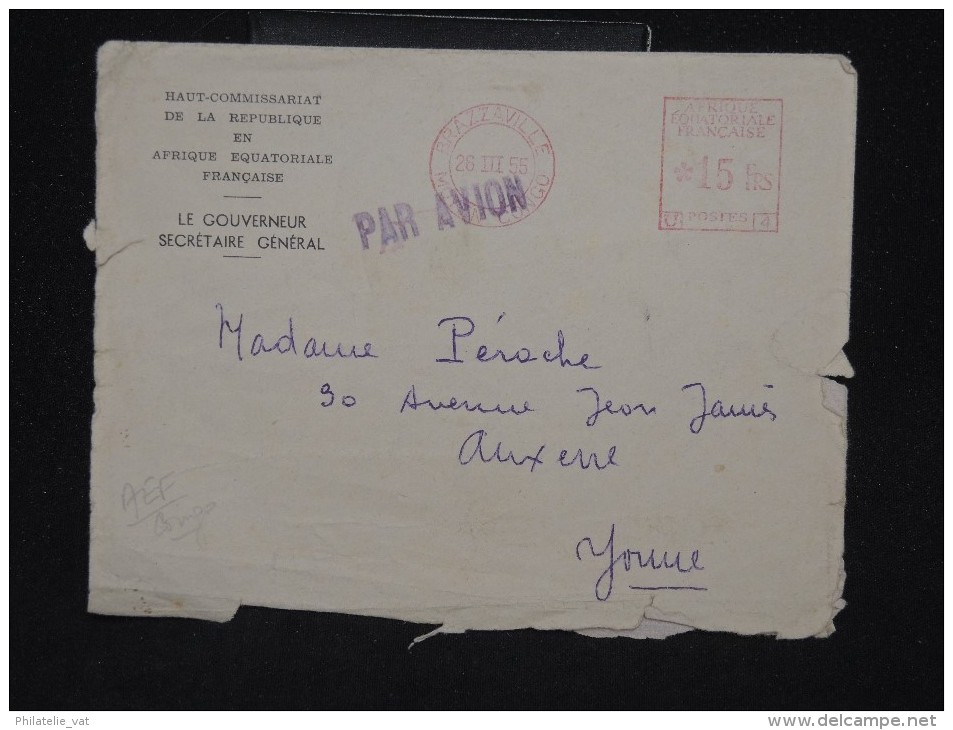 HAUT-COMMISSARIAT
DE LA REPUBLIQUE
EN
AFRIQUE EQUATORIALE
FRANÇAISE
LE GOUVERNEUR
SECRÉTAIRE GÉNÉRAL
BRAZZAVILLE
26 III 55
CONGO
PAR AVION
AFRIQUE
ÉQUATORIALE
FRANÇAISE
*15 FRS
U POSTES 4
Madame Péroche
30 Avenue Jean Jaurès
Auxerre
Yonne
AEF
Congo
Philatelie_vat
www.delcampe.net